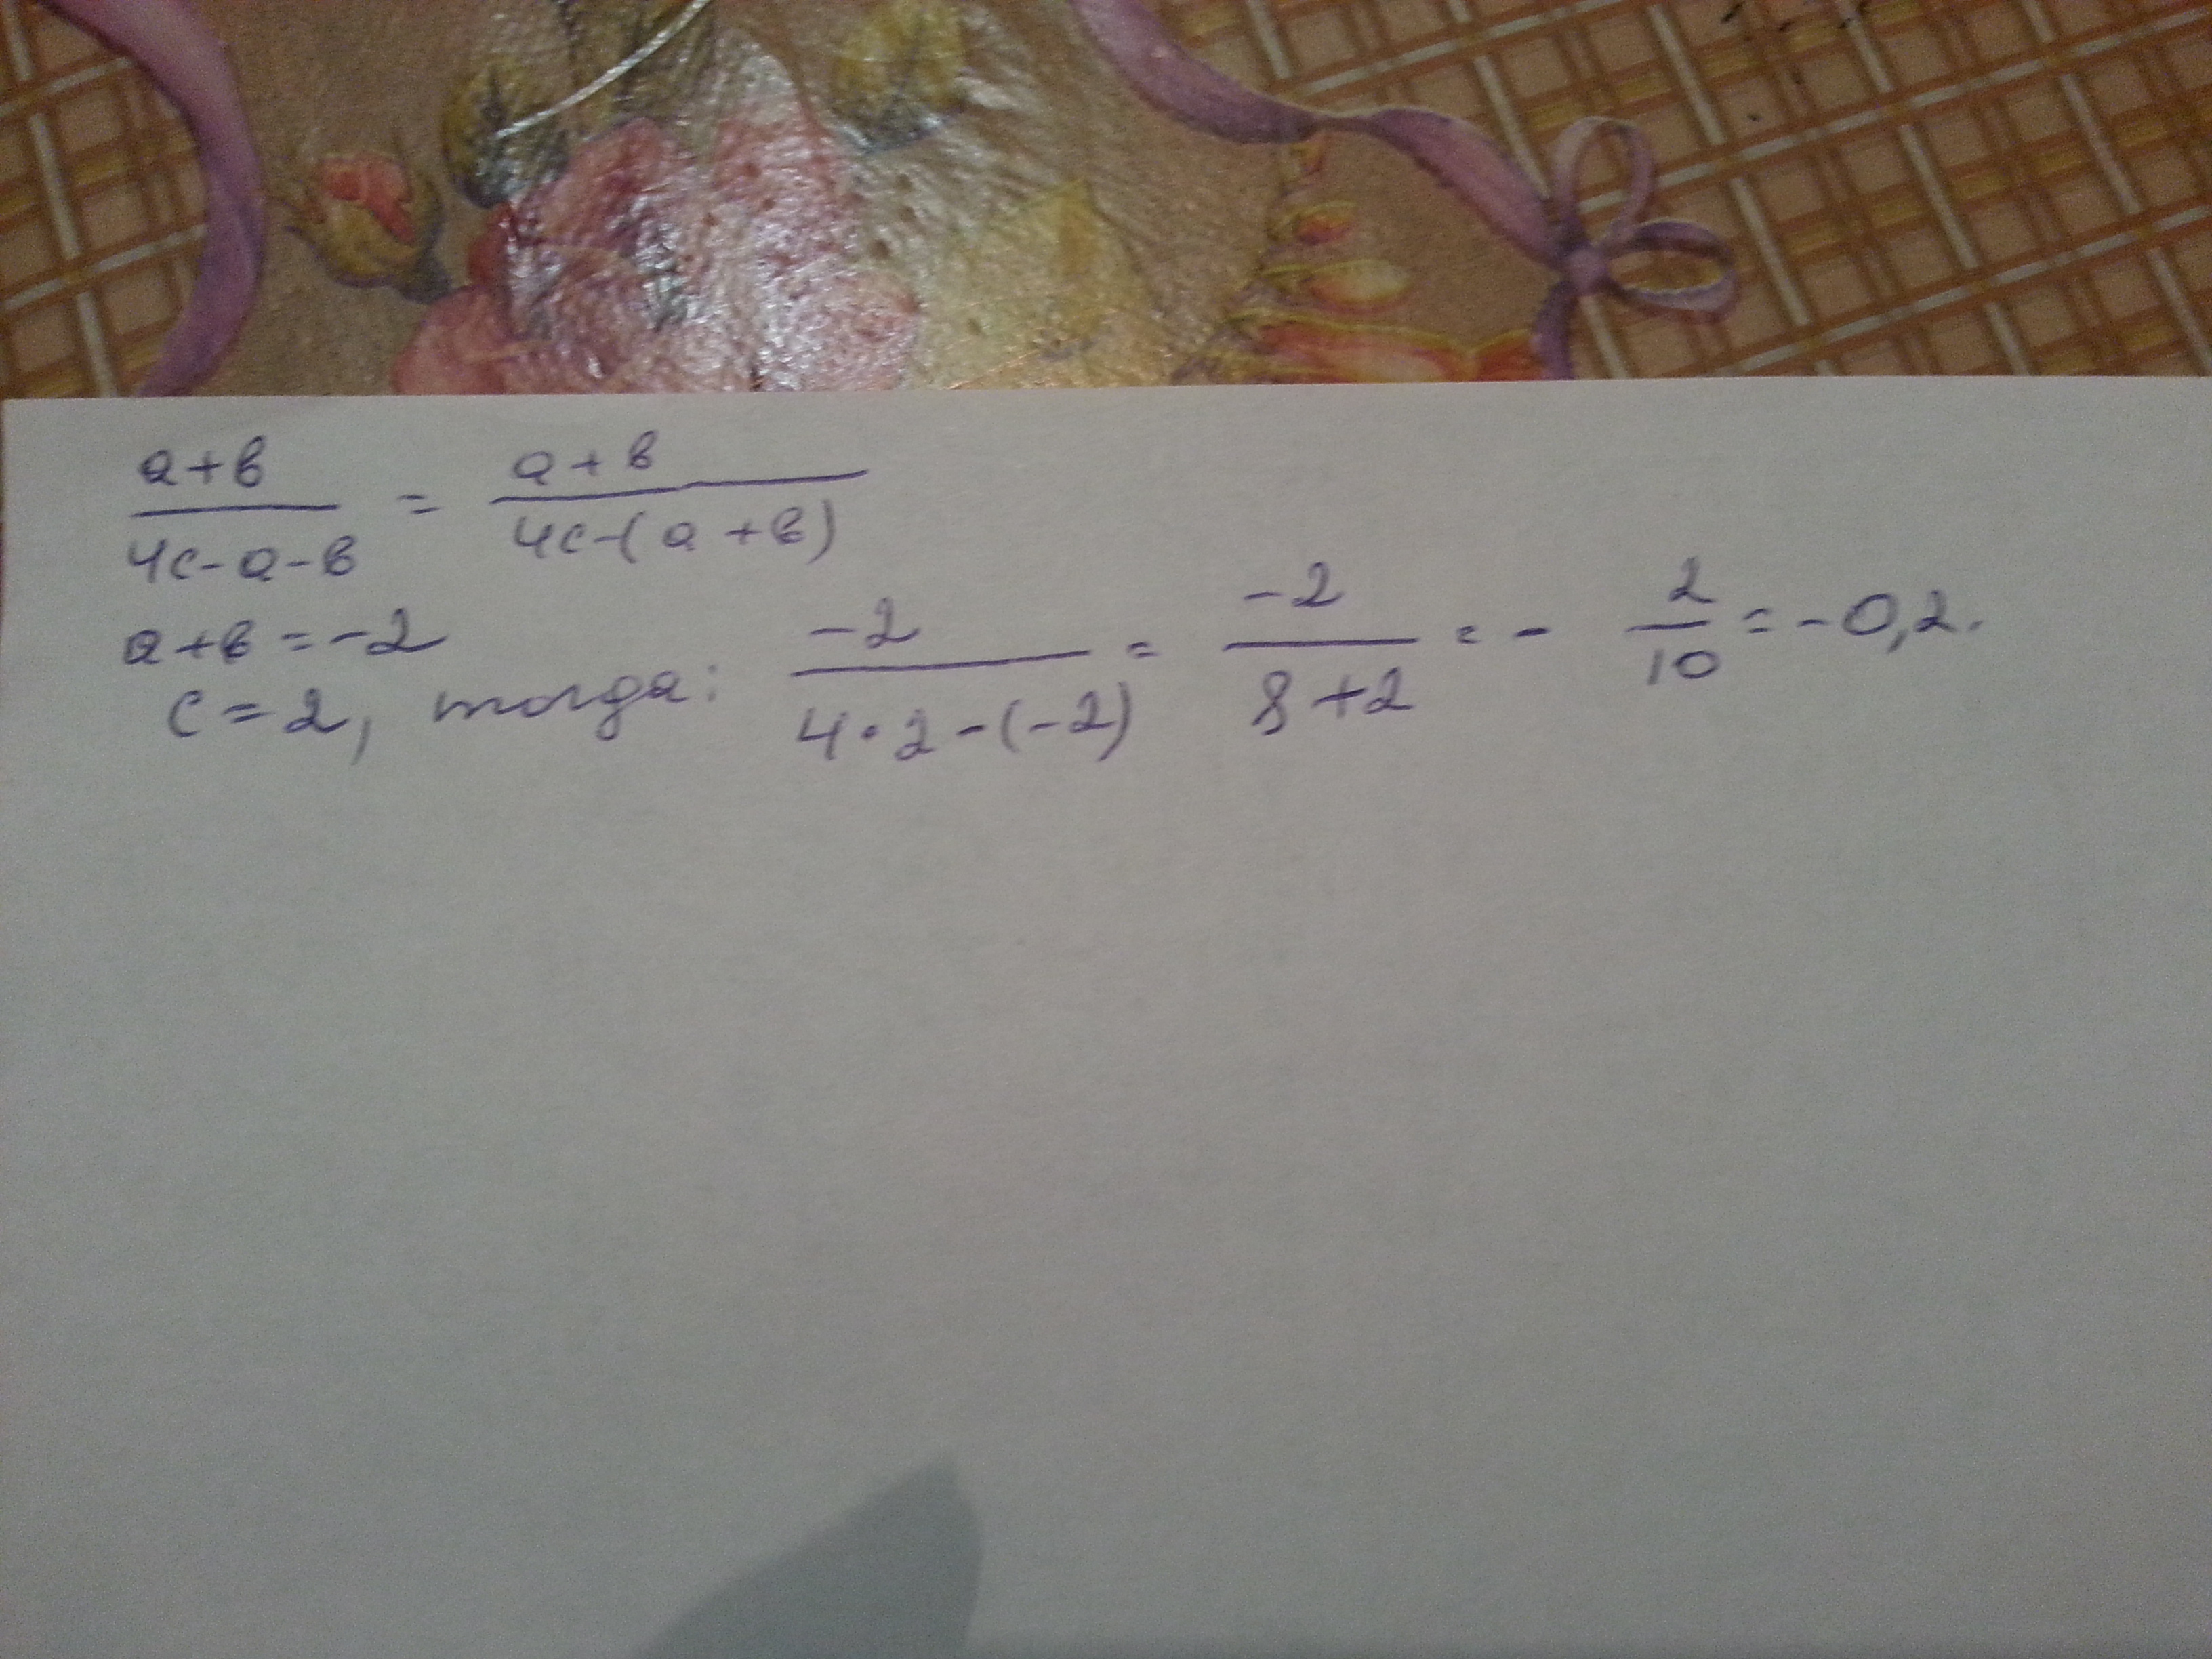 (a+b)/(4c-a-b) = (a+b)/(4c-(a+b))
a+b=-2
c=2, тогда: (-2)/(4·2-(-2)) = (-2)/(8+2) = - 2/10 = -0,2.